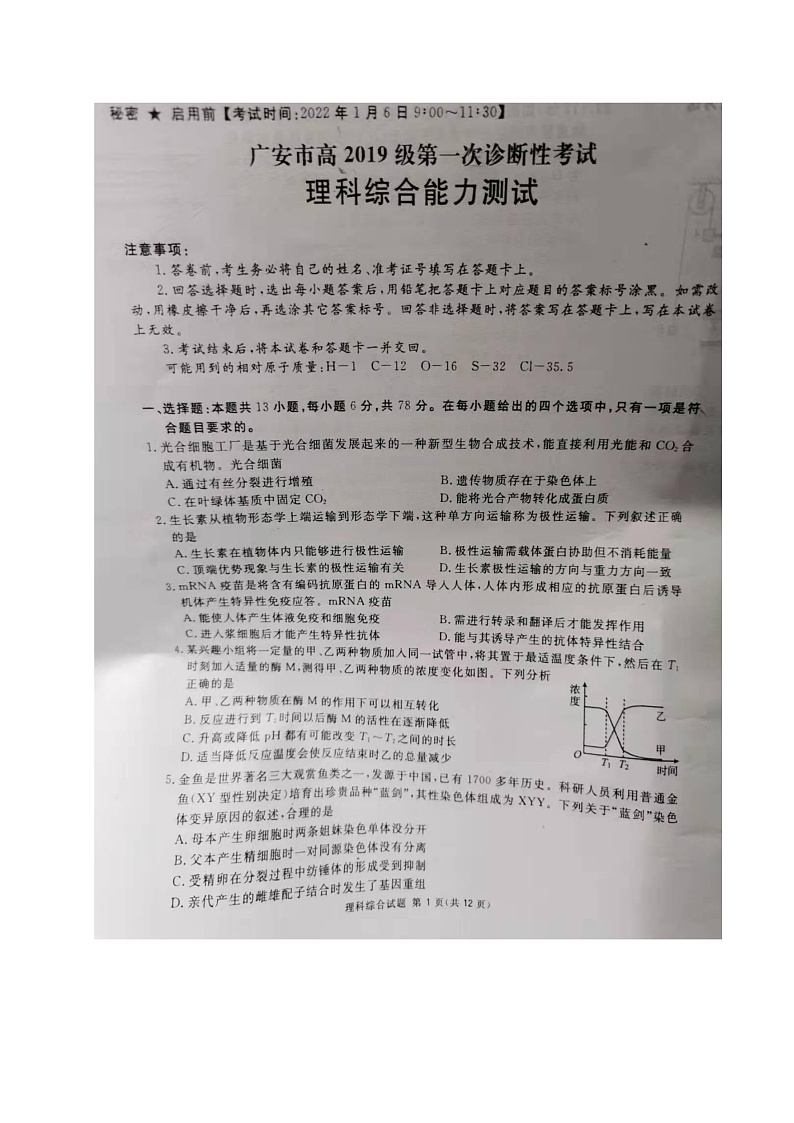 秘密 ★ 启用前【考试时间:2022年1月6日9:00~11:30】
广安市高2019级第一次诊断性考试
理科综合能力测试
注意事项:
1.答卷前,考生务必将自己的姓名、准考证号填写在答题卡上。
2.回答选择题时,选出每小题答案后,用铅笔把答题卡上对应题目的答案标号涂黑。如需改
动,用橡皮擦干净后,再选涂其它答案标号。回答非选择题时,将答案写在答题卡上,写在本试卷
上无效。
3.考试结束后,将本试卷和答题卡一并交回。
可能用到的相对原子质量:H-1 C-12 O-16 S-32 Cl-35.5
一、选择题:本题共13小题,每小题6分,共78分。在每小题给出的四个选项中,只有一项是符
合题目要求的。
1.光合细胞工厂是基于光合细菌发展起来的一种新型生物合成技术,能直接利用光能和CO₂合
成有机物。光合细菌
A.通过有丝分裂进行增殖 B.遗传物质存在于染色体上
C.在叶绿体基质中固定CO₂ D.能将光合产物转化成蛋白质
2.生长素从植物形态学上端运输到形态学下端,这种单方向运输称为极性运输。下列叙述正确
的是
A.生长素在植物体内只能够进行极性运输 B.极性运输需载体蛋白协助但不消耗能量
C.顶端优势现象与生长素的极性运输有关 D.生长素极性运输的方向与重力方向一致
3.mRNA疫苗是将含有编码抗原蛋白的mRNA导入人体,人体内形成相应的抗原蛋白后诱导
机体产生特异性免疫应答。mRNA疫苗
A.能使人体产生体液免疫和细胞免疫 B.需进行转录和翻译后才能发挥作用
C.进入浆细胞后才能产生特异性抗体 D.能与其诱导产生的抗体特异性结合
4.某兴趣小组将一定量的甲、乙两种物质加入同一试管中,将其置于最适温度条件下,然后在T₁
时刻加入适量的酶M,测得甲、乙两种物质的浓度变化如图。下列分析
正确的是
A.甲、乙两种物质在酶M的作用下可以相互转化
B.反应进行到T₂时间以后酶M的活性在逐渐降低
C.升高或降低pH都有可能改变T₁~T₂之间的时长
D.适当降低反应温度会使反应结束时乙的总量减少
浓度
乙
甲
O T₁ T₂ 时间
5.金鱼是世界著名三大观赏鱼类之一,发源于中国,已有1700多年历史。科研人员利用普通金
鱼(XY型性别决定)培育出珍贵品种“蓝剑”,其性染色体组成为XYY。下列关于“蓝剑”染色
体变异原因的叙述,合理的是
A.母本产生卵细胞时两条姐妹染色单体没分开
B.父本产生精细胞时一对同源染色体没有分离
C.受精卵在分裂过程中纺锤体的形成受到抑制
D.亲代产生的雌雄配子结合时发生了基因重组
理科综合试题 第1页(共12页)